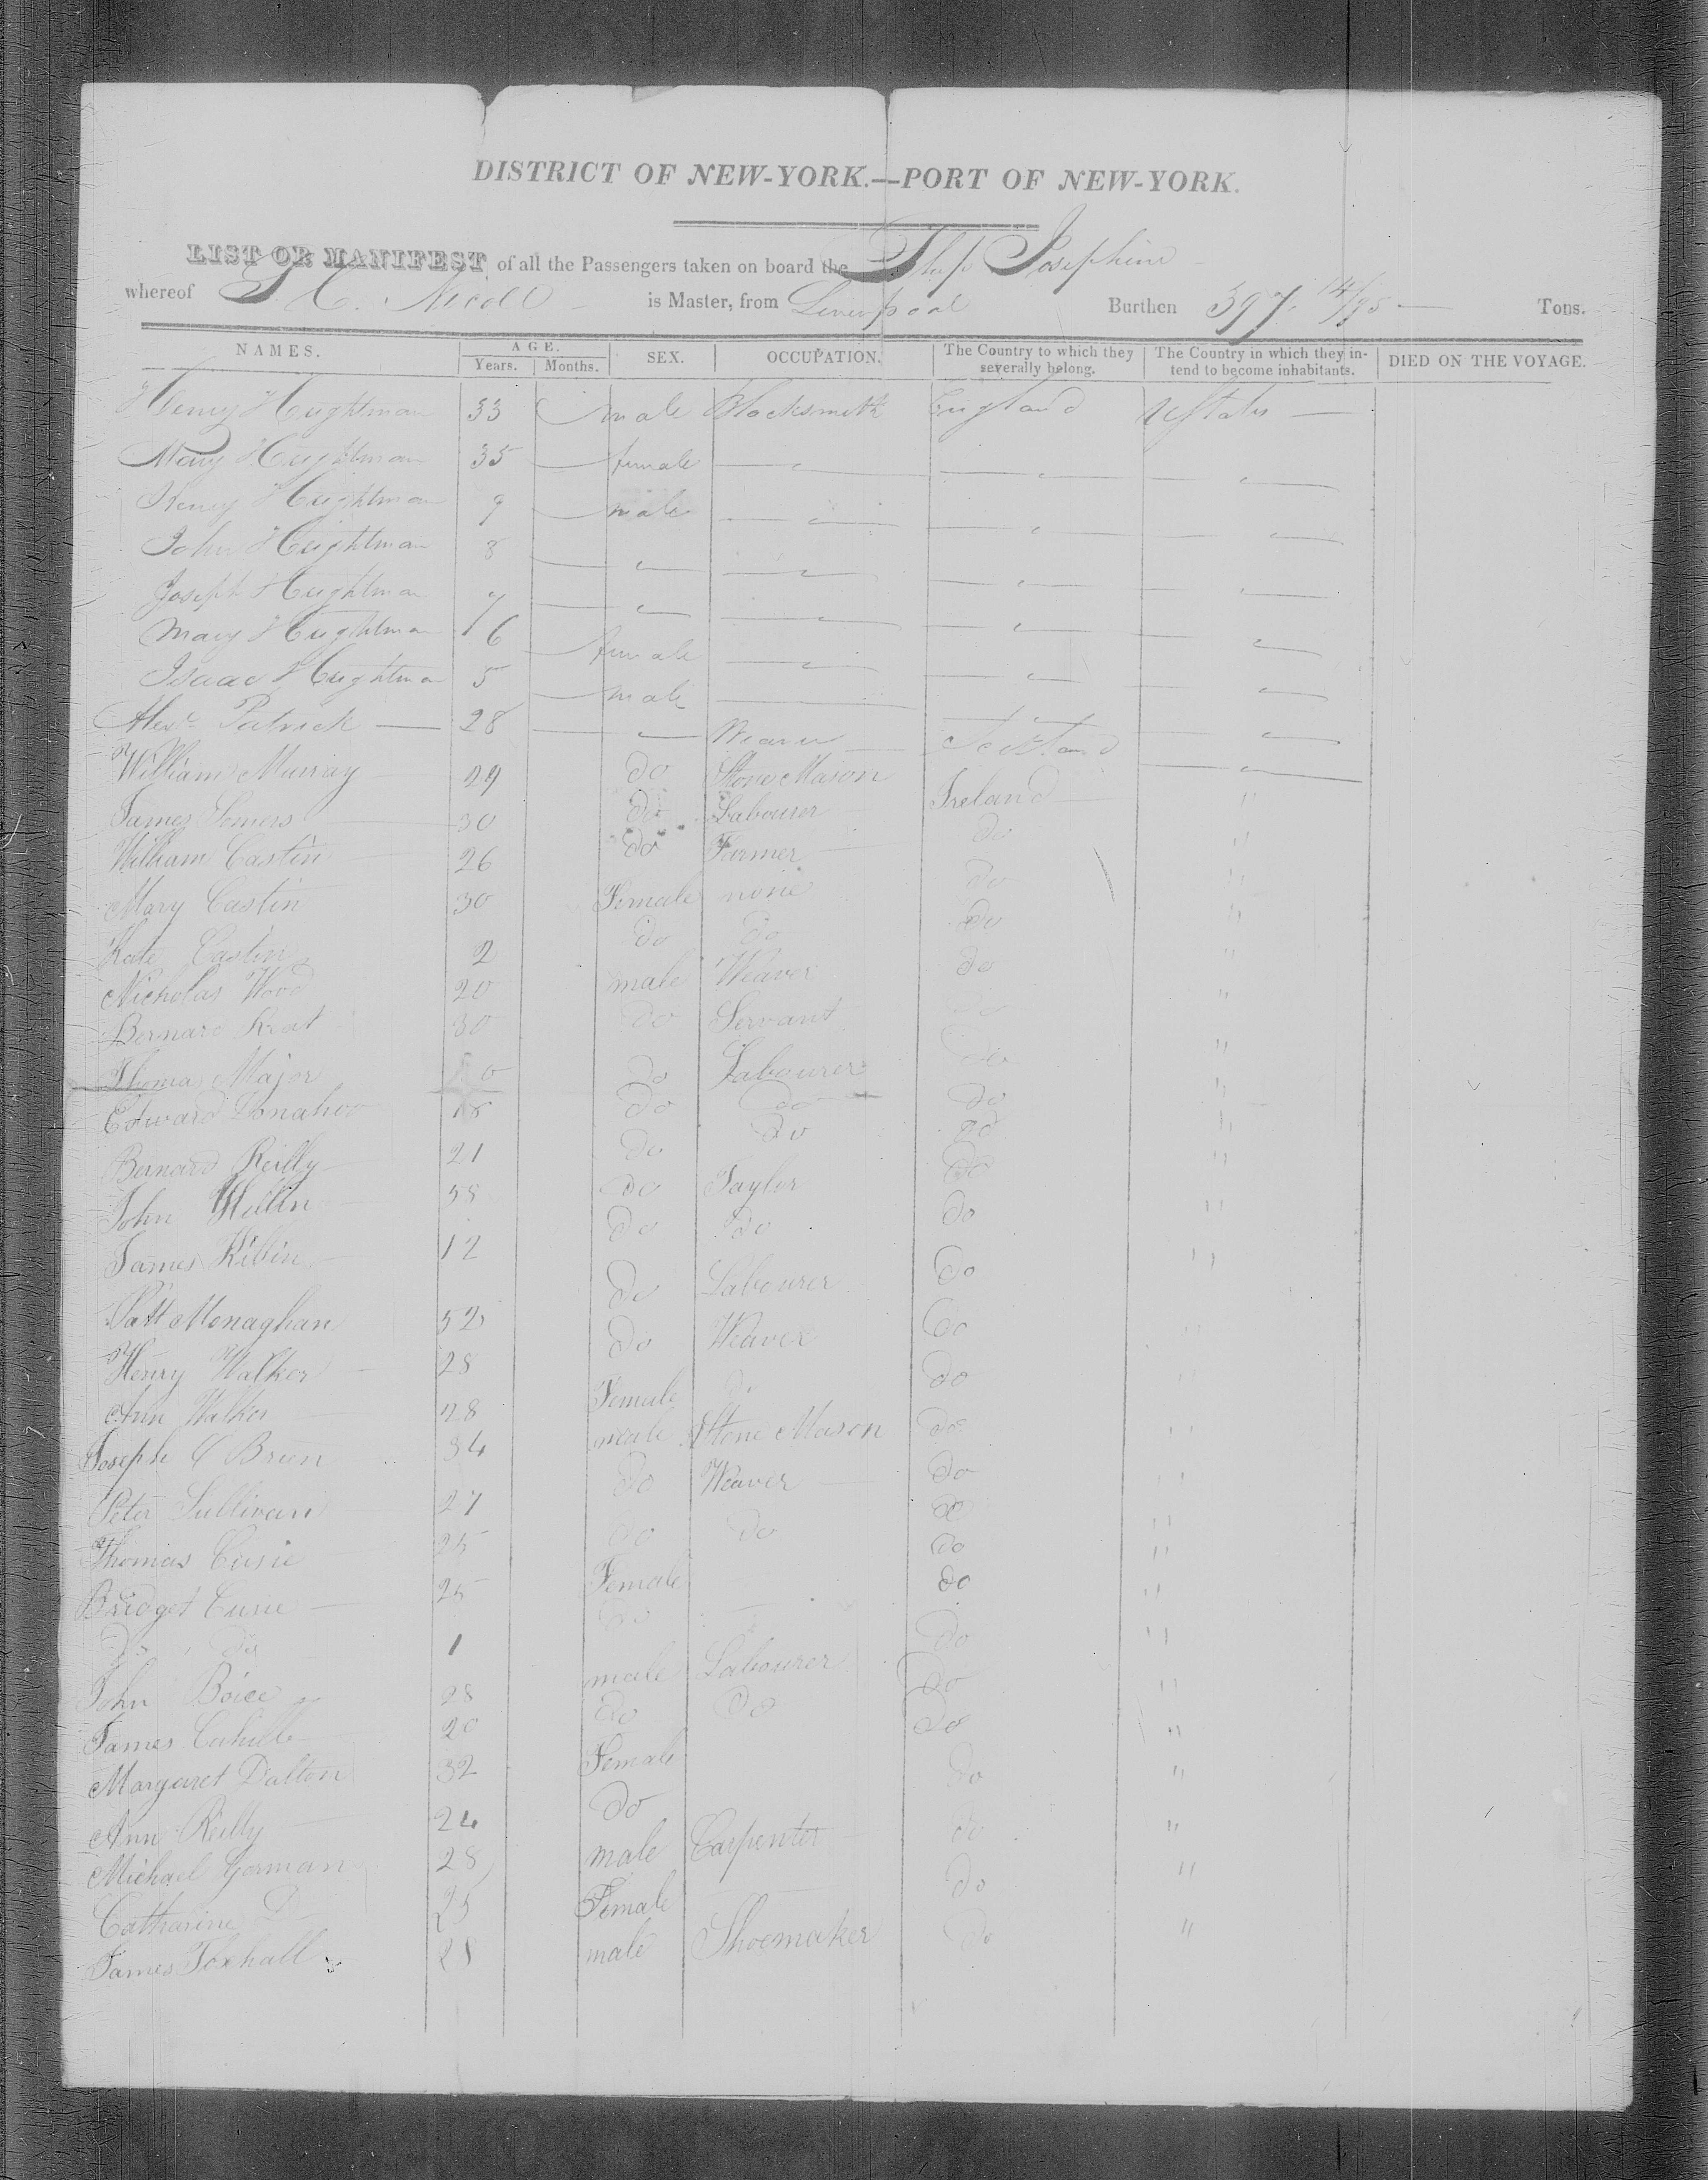 DISTRICT OF NEW-YORK.—PORT OF NEW-YORK.
LIST OR MANIFEST of all the Passengers taken on board the Ship Josephine
whereof Nicoll is Master, from Liverpool Burthen 397 14/95 Tons.
NAMES. AGE. Years. Months. SEX. OCCUPATION. The Country to which they severally belong. The Country in which they intend to become inhabitants. DIED ON THE VOYAGE.
Henry Heightman 33 male Blacksmith England UStates
Mary Heightman 35 female
Henry Heightman 9 male
John Heightman 8
Joseph Heightman 7
Mary Heightman 6 female
Isaac Heightman 5 male
Alexr. Patrick 28 Weaver Scotland
William Murray 29 do Stone Mason Ireland
James Somers 30 do Labourer do "
William Castin 26 do Farmer do "
Mary Castin 30 Female none do "
Kate Castin 2 do do do "
Nicholas Wood 20 male Weaver do "
Bernard 30 do Servant do "
Thomas Major do Labourer do "
Edward Donahoo 18 do do do "
Bernard Reilly 21 do do do "
John 58 do Taylor do "
James Kibin 12 do do do "
Patt Monaghan 52 do Labourer do "
Henry Walker 28 do Weaver do "
Ann Walker 28 Female do do "
Joseph O Brien 34 male Stone Mason do "
Peter Sullivan 27 do Weaver do "
Thomas Cusie 25 do do do "
Bridget Cusie 25 Female do "
Do do 1 do do "
John Boice 28 male Labourer do "
James Cahill 20 do do do "
Margaret Dalton 32 Female do "
Ann Reilly 24 do do "
Michael Gorman 28 male Carpenter do "
Catharine Do 25 Female do "
James Foxhall 28 male Shoemaker do "